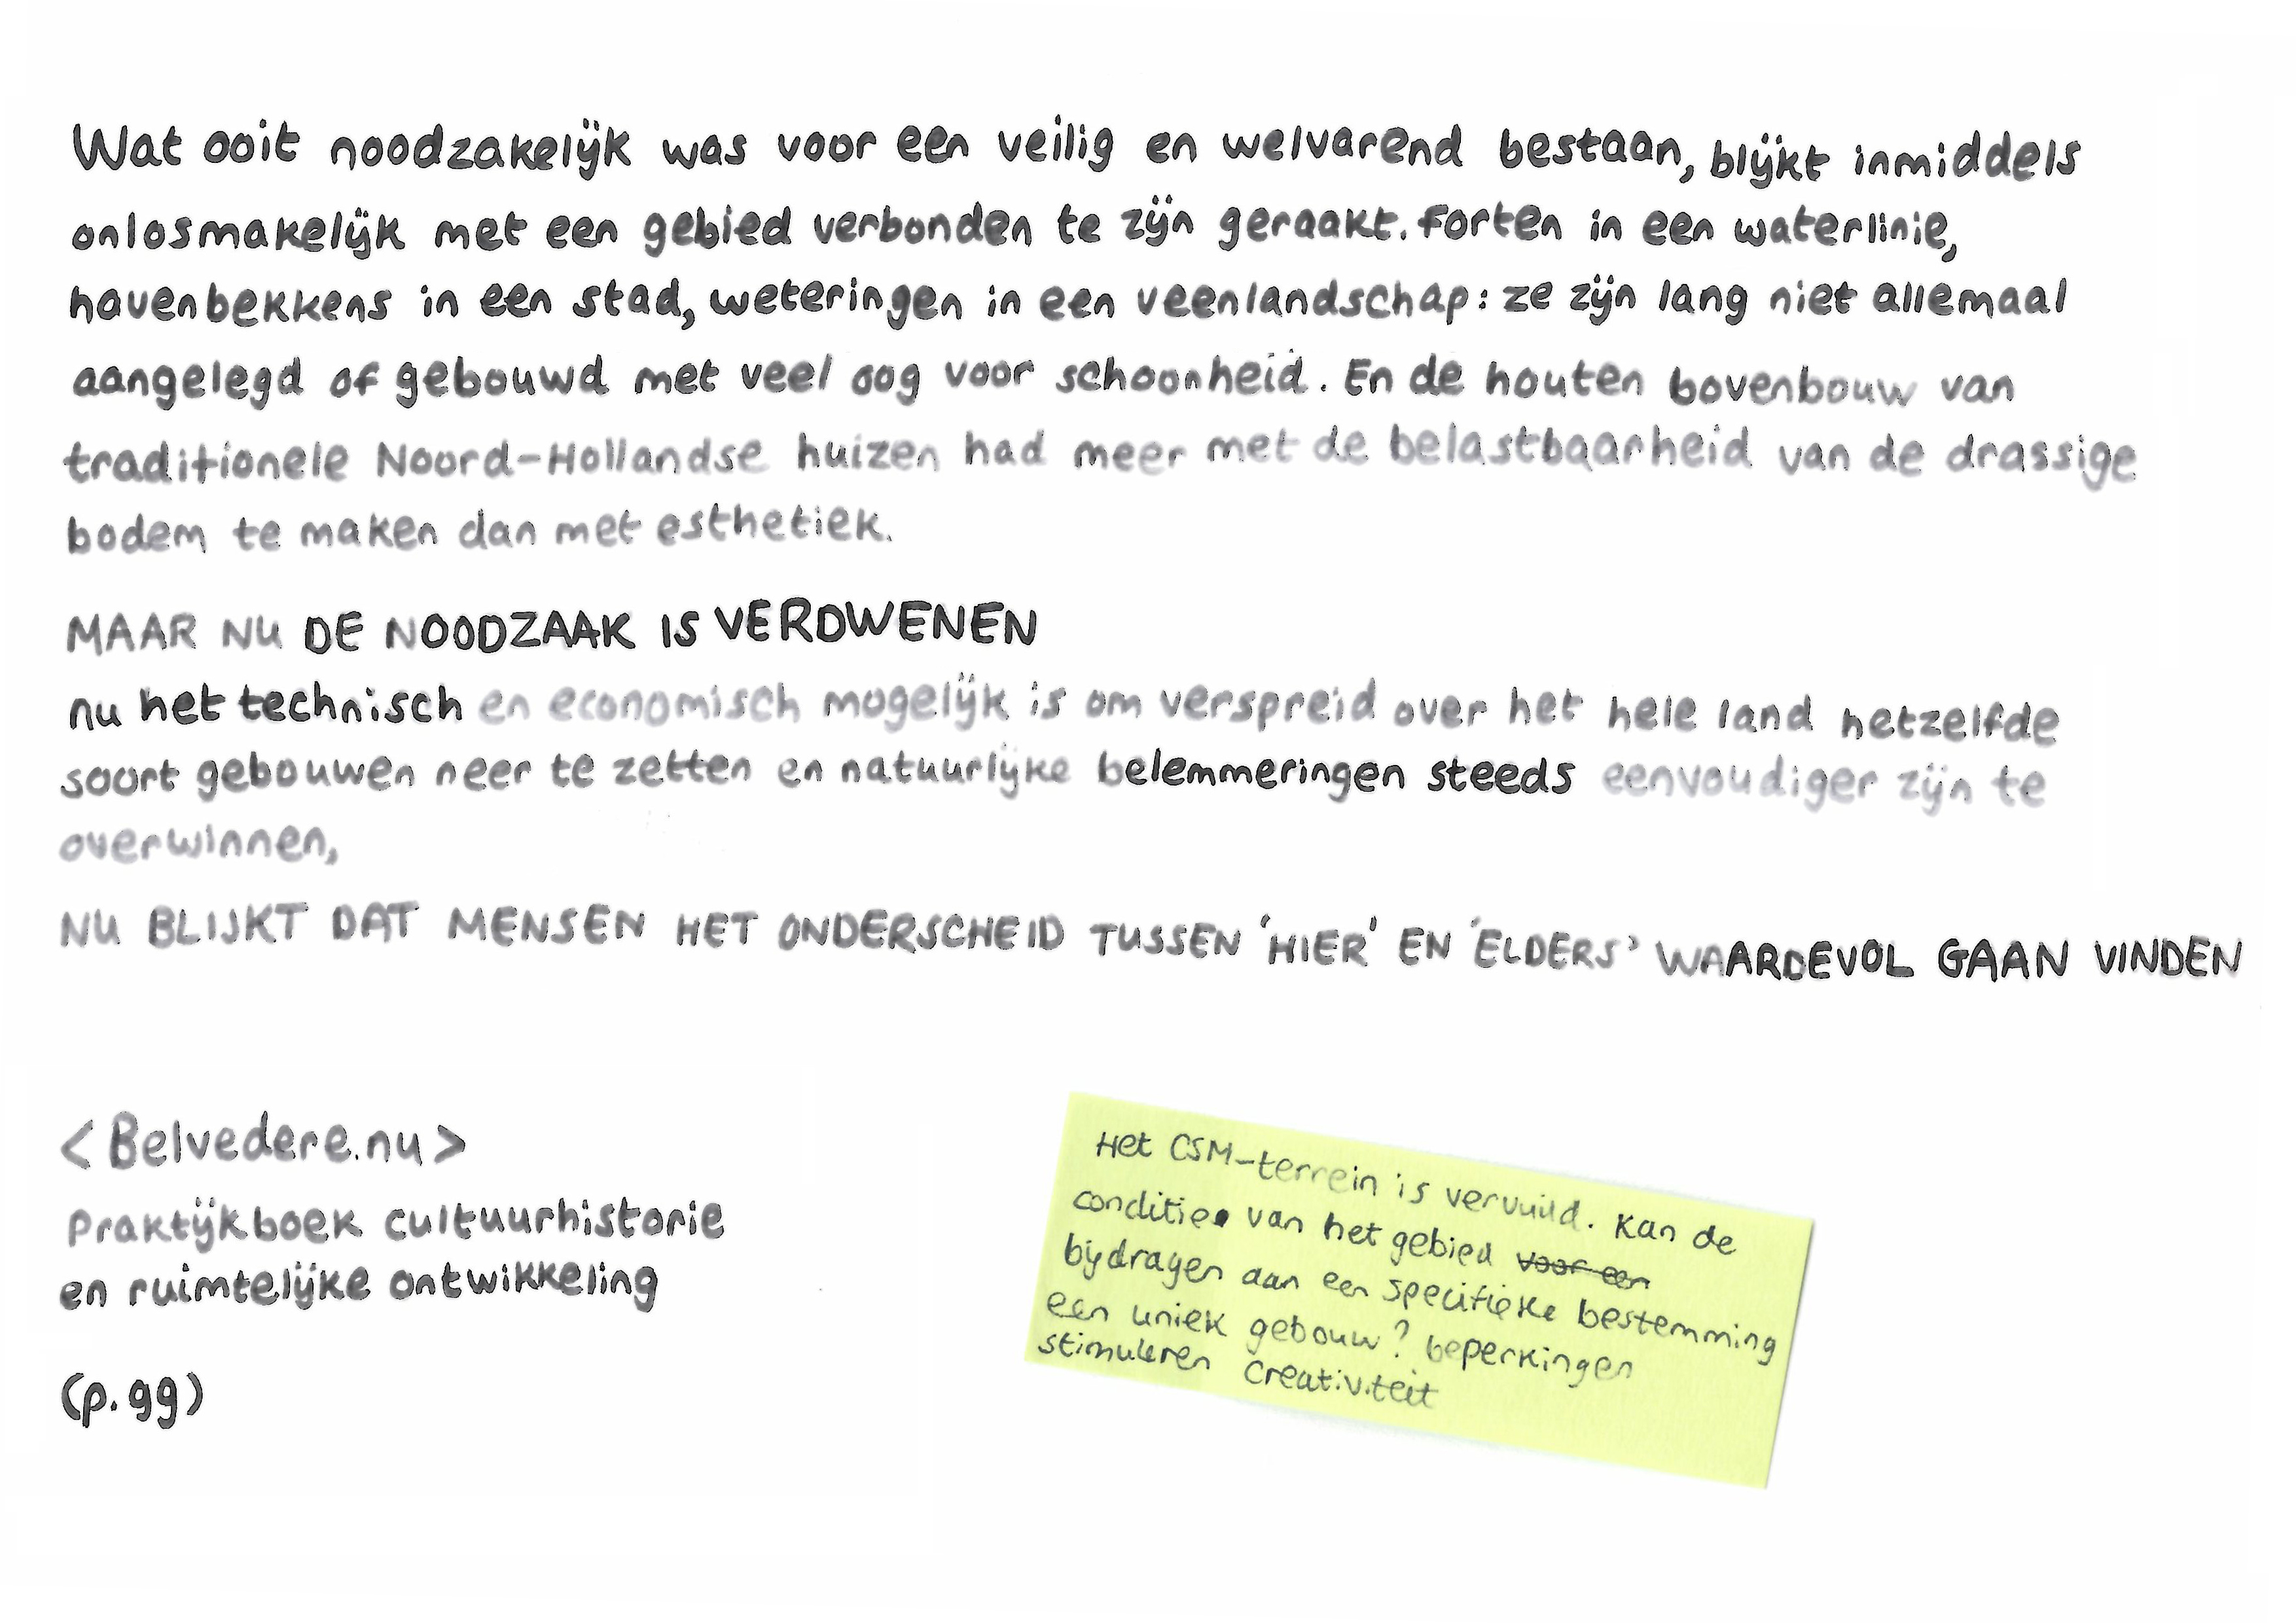 Wat ooit noodzakelijk was voor een veilig en welvarend bestaan, blijkt inmiddels
onlosmakelijk met een gebied verbonden te zijn geraakt. Forten in een waterlinie,
havenbekkens in een stad, weteringen in een veenlandschap: ze zijn lang niet allemaal
aangelegd of gebouwd met veel oog voor schoonheid. En de houten bovenbouw van
traditionele Noord-Hollandse huizen had meer met de belastbaarheid van de drassige
bodem te maken dan met esthetiek.
MAAR NU DE NOODZAAK IS VERDWENEN
nu het technisch en economisch mogelijk is om verspreid over het hele land hetzelfde
soort gebouwen neer te zetten en natuurlijke belemmeringen steeds eenvoudiger zijn te
overwinnen,
NU BLIJKT DAT MENSEN HET ONDERSCHEID TUSSEN 'HIER' EN 'ELDERS' WAARDEVOL GAAN VINDEN
<Belvedere.nu>
Praktijkboek cultuurhistorie
en ruimtelijke ontwikkeling
(p.99)
Het CSM-terrein is vervuild. Kan de
conditie van het gebied voor een
bijdragen aan een specifieke bestemming
een uniek gebouw? beperkingen
stimuleren creativiteit